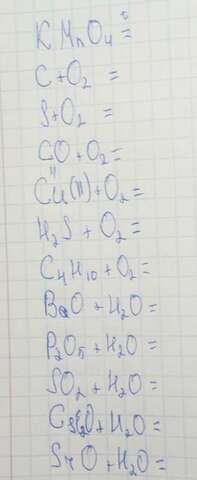 KMnO₄ t=
C+O₂ =
S+O₂ =
CO+O₂=
Cu(II)+O₂=
H₂S + O₂=
C₄H₁₀+O₂=
BaO + H₂O=
P₂O₅ + H₂O=
SO₂ + H₂O=
Cs₂O+H₂O=
SrO+H₂O=